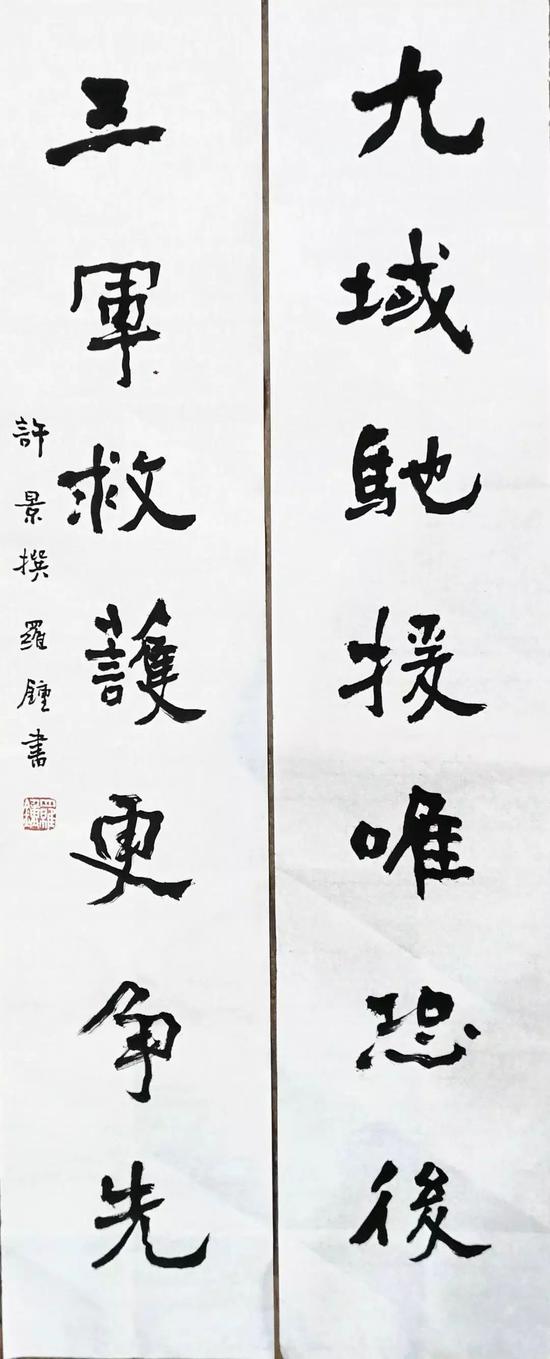 九域馳援唯恐後
三軍救護更争先
許景撰 羅鍾書
羅鍾